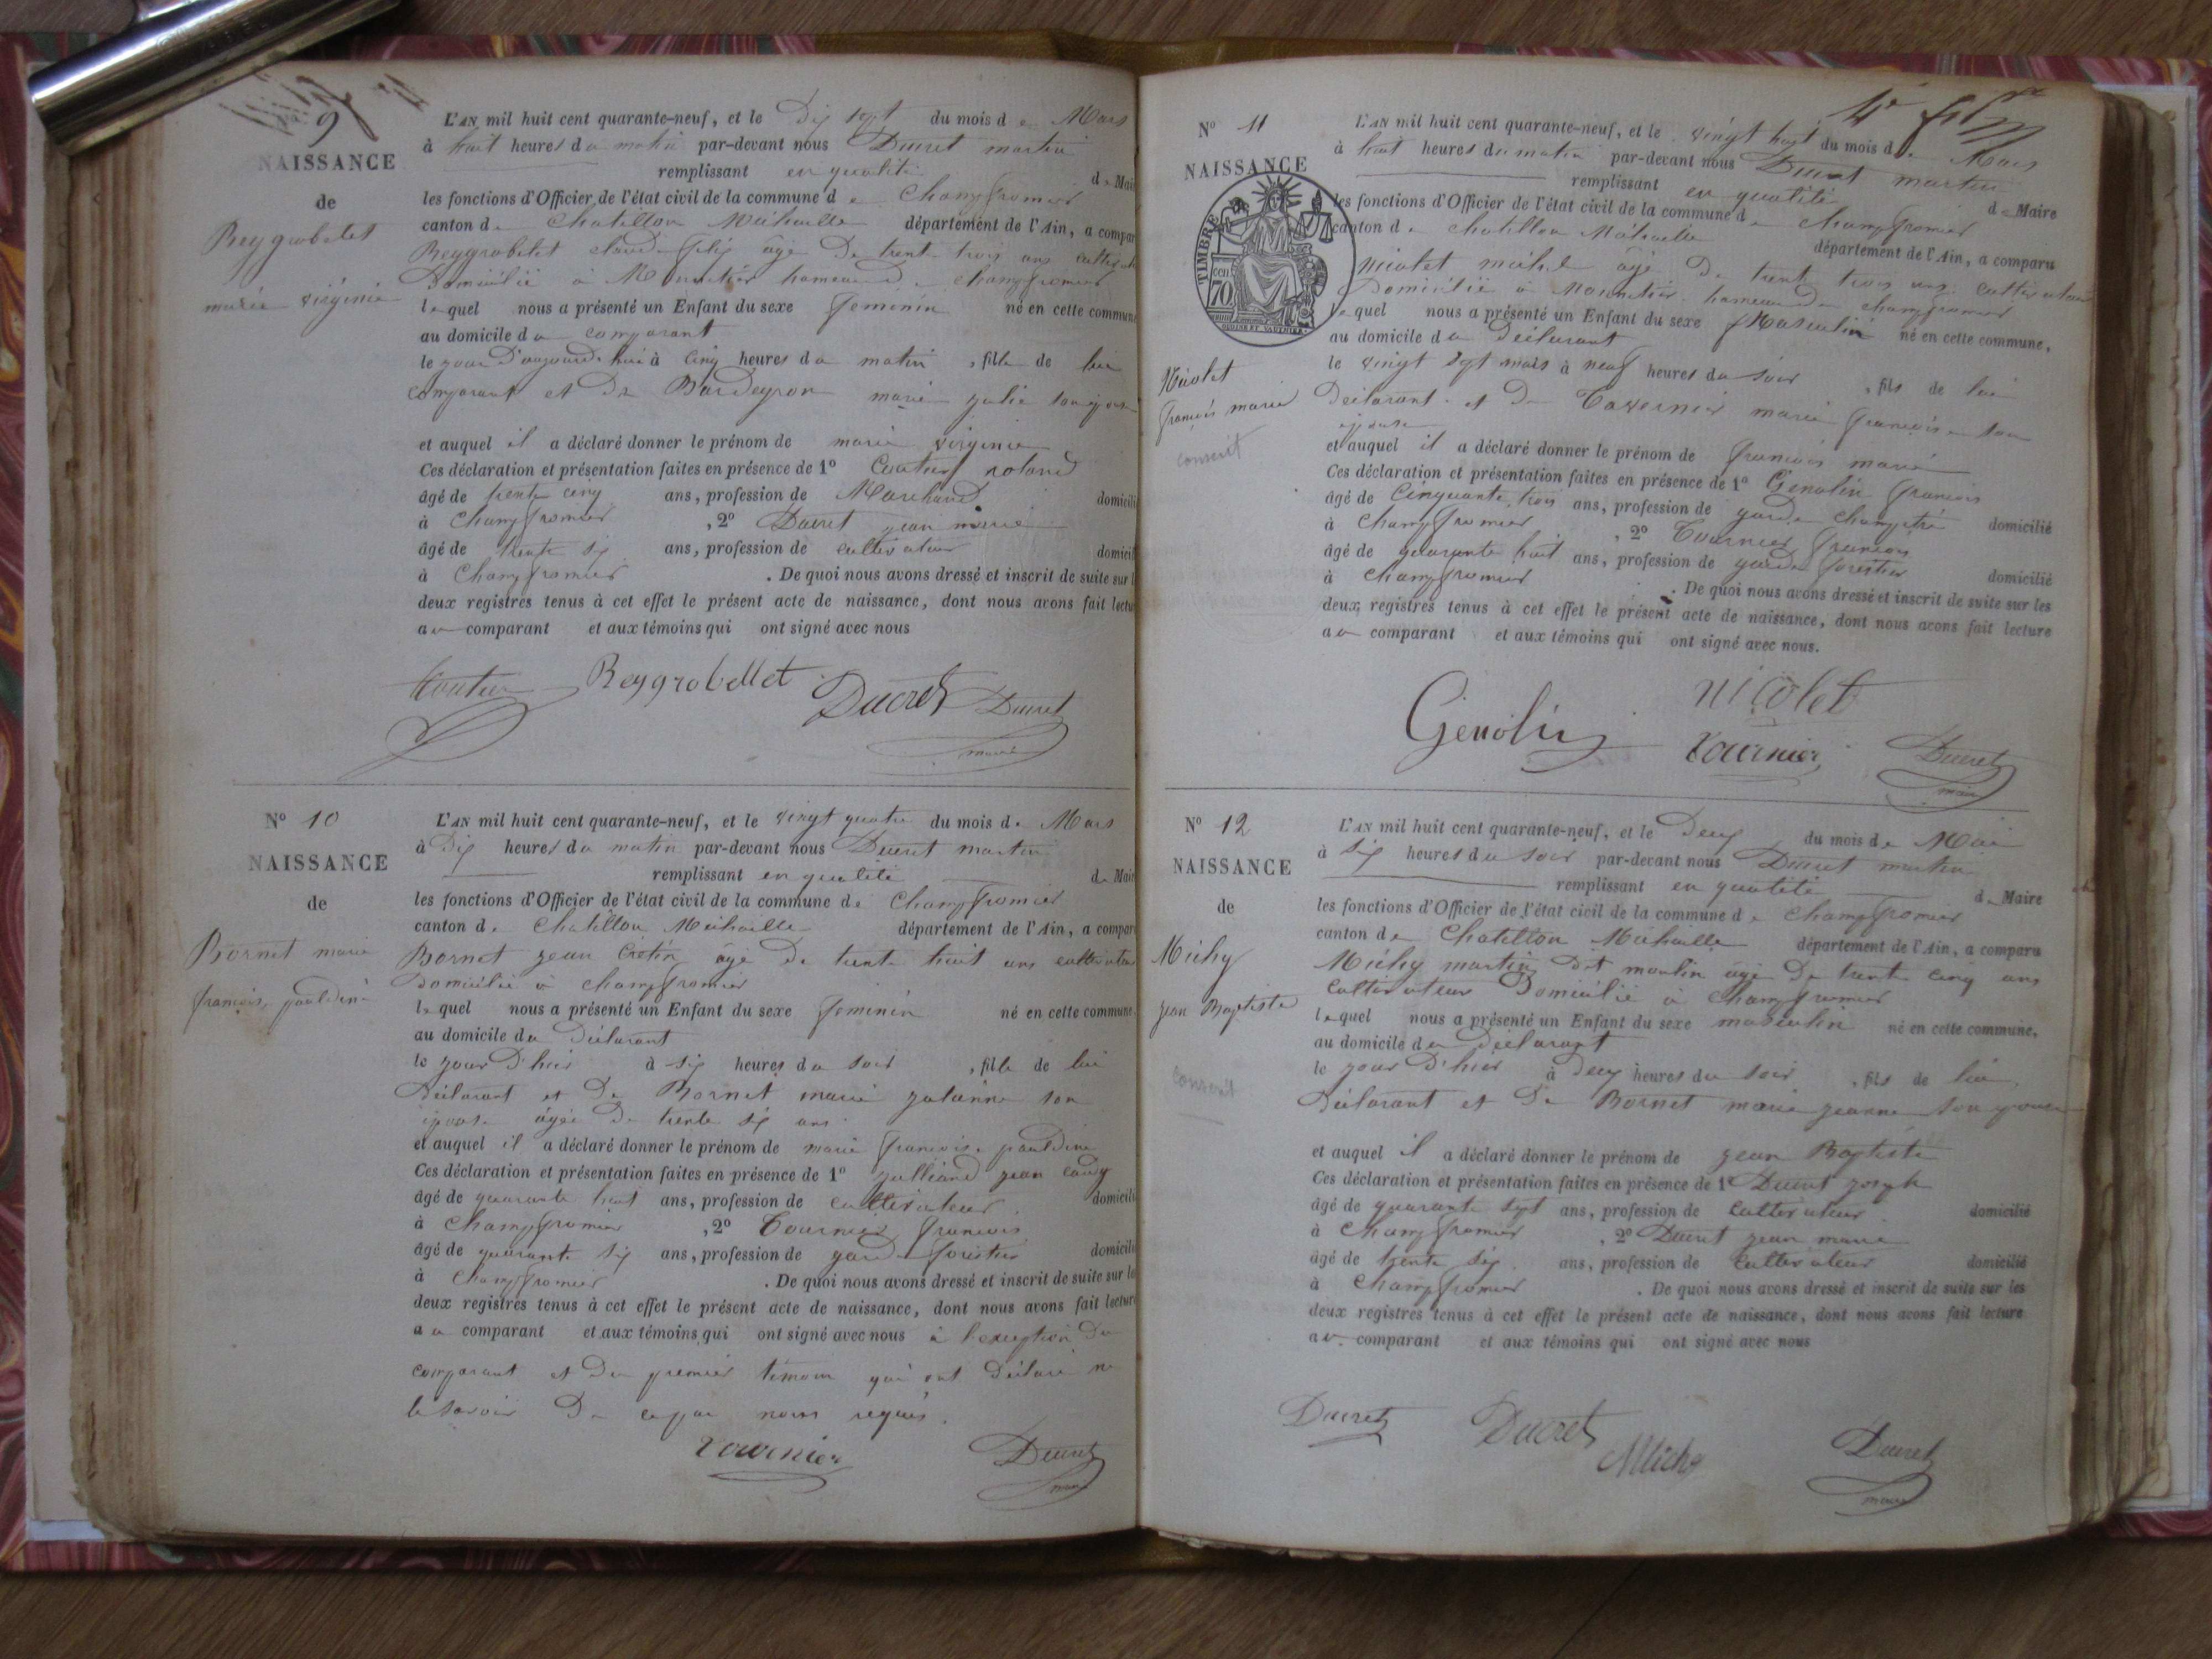 9
NAISSANCE
de
Reygrobelet
marie virginie
L'AN mil huit cent quarante-neuf, et le Dix sept du mois de Mars
à huit heures du matin par-devant nous Ducret martin
remplissant en qualité de Mai
les fonctions d'Officier de l'état civil de la commune de Champfromier
canton de Chatillon Michaille département de l'Ain, a compar
Reygrobelet claude felix âgé De trente trois ans cultivate
Domicilié à Monnetier hameau de champfromier
lequel nous a présenté un Enfant du sexe feminin né en cette commune
au domicile du comparant
le jour D'aujourd'hui à cinq heures du matin , fille de lui
comparant et De Bordeyron marie julie son épouse
et auquel il a déclaré donner le prénom de marie virginie
Ces déclaration et présentation faites en présence de 1º Coutier roland
âgé de trente cinq ans, profession de Marchand domicili
à Champfromier , 2º Ducret jean marie
âgé de trente six ans, profession de cultivateur domicil
à Champfromier . De quoi nous avons dressé et inscrit de suite sur l
deux registres tenus à cet effet le présent acte de naissance, dont nous avons fait lectu
au comparant et aux témoins qui ont signé avec nous
Coutier Reygrobellet Ducret Ducret
maire
Nº 10
NAISSANCE
de
Bornet marie
françoise pauldine
L'AN mil huit cent quarante-neuf, et le vingt quatre du mois de Mars
à Dix heures du matin par-devant nous Ducret martin
remplissant en qualité de Mair
les fonctions d'Officier de l'état civil de la commune de Champfromier
canton de Chatillon Michaille département de l'Ain, a compar
Bornet jean Cretin âgé de trente huit ans cultivateur
Domicilié à champfromier
lequel nous a présenté un Enfant du sexe feminin né en cette commune,
au domicile du Déclarant
le jour D'hier à six heures du soir , fille de lui
Déclarant et De Bornet marie julienne son
épouse âgée De trente six ans
et auquel il a déclaré donner le prénom de marie françoise pauldine
Ces déclaration et présentation faites en présence de 1º julliand jean
âgé de quarante huit ans, profession de cultivateur domicili
à Champfromier , 2º Tournier françois
âgé de quarante six ans, profession de garde forestier domicili
à Champfromier . De quoi nous avons dressé et inscrit de suite sur le
deux registres tenus à cet effet le présent acte de naissance, dont nous avons fait lecture
au comparant et aux témoins qui ont signé avec nous à l'exception Du
comparant et Du premier témoin qui ont Déclaré ne
le savoir De ce par nous requis.
Tournier Ducret
maire
Nº 11
NAISSANCE
TIMBRE
70
Nicolet
françois marie
conscrit
L'AN mil huit cent quarante-neuf, et le vingt huit du mois de Mars
à huit heures du matin par-devant nous Ducret martin
remplissant en qualité de Maire
les fonctions d'Officier de l'état civil de la commune de champfromier
canton de chatillon Michaille département de l'Ain, a comparu
nicolet michel âgé De trente trois ans cultivateur
Domicilié à Monnetier hameau De champfromier
lequel nous a présenté un Enfant du sexe Masculin né en cette commune,
au domicile du Déclarant
le vingt sept mars à neuf heures du soir , fils de lui
Déclarant et De Tavernier marie françoise son
épouse
et auquel il a déclaré donner le prénom de françois marie
Ces déclaration et présentation faites en présence de 1º Genolin françois
âgé de Cinquante trois ans, profession de garde champêtre domicilié
à Champfromier , 2º Tournier françois
âgé de quarante huit ans, profession de garde forestier domicilié
à champfromier . De quoi nous avons dressé et inscrit de suite sur les
deux registres tenus à cet effet le présent acte de naissance, dont nous avons fait lecture
au comparant et aux témoins qui ont signé avec nous.
Genolin nicolet
Tournier Ducret
maire
Nº 12
NAISSANCE
de
Michy
jean Baptiste
conscrit
L'AN mil huit cent quarante-neuf, et le Deux du mois de Mai
à six heures du soir par-devant nous Ducret martin
remplissant en qualité de Maire
les fonctions d'Officier de l'état civil de la commune de champfromier
canton de Chatillon Michaille département de l'Ain, a comparu
Michy martin Dit moulin âgé De trente cinq ans
Cultivateur Domicilié à Champfromier
lequel nous a présenté un Enfant du sexe masculin né en cette commune,
au domicile du Déclarant
le jour D'hier à Deux heures du soir , fils de lui
Déclarant et De Bornet marie jeanne son épouse
et auquel il a déclaré donner le prénom de jean Baptiste
Ces déclaration et présentation faites en présence de 1º Ducret joseph
âgé de quarante sept ans, profession de Cultivateur domicilié
à Champfromier , 2º Ducret jean marie
âgé de trente six ans, profession de Cultivateur domicilié
à Champfromier . De quoi nous avons dressé et inscrit de suite sur les
deux registres tenus à cet effet le présent acte de naissance, dont nous avons fait lecture
au comparant et aux témoins qui ont signé avec nous
Ducret Ducret Michy Ducret
maire